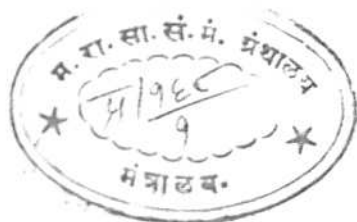 म. रा. सा. सं. मं. ग्रंथालय
१९६८
१
मंत्रालय.